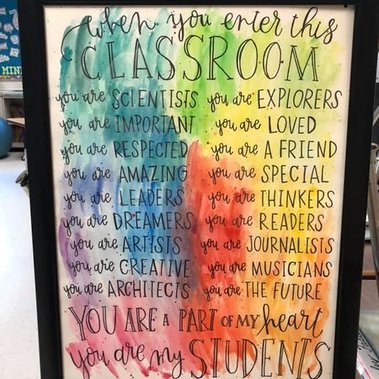 when you enter this
CLASSROOM
you are SCIENTISTS you are EXPLORERS
you are IMPORTANT you are LOVED
you are RESPECTED you are A FRIEND
you are AMAZING you are SPECIAL
you are LEADERS you are THINKERS
you are DREAMERS you are READERS
you are ARTISTS you are JOURNALISTS
you are CREATIVE you are MUSICIANS
you are ARCHITECTS you are THE FUTURE
YOU ARE A PART OF MY heart
you are my STUDENTS
MIND